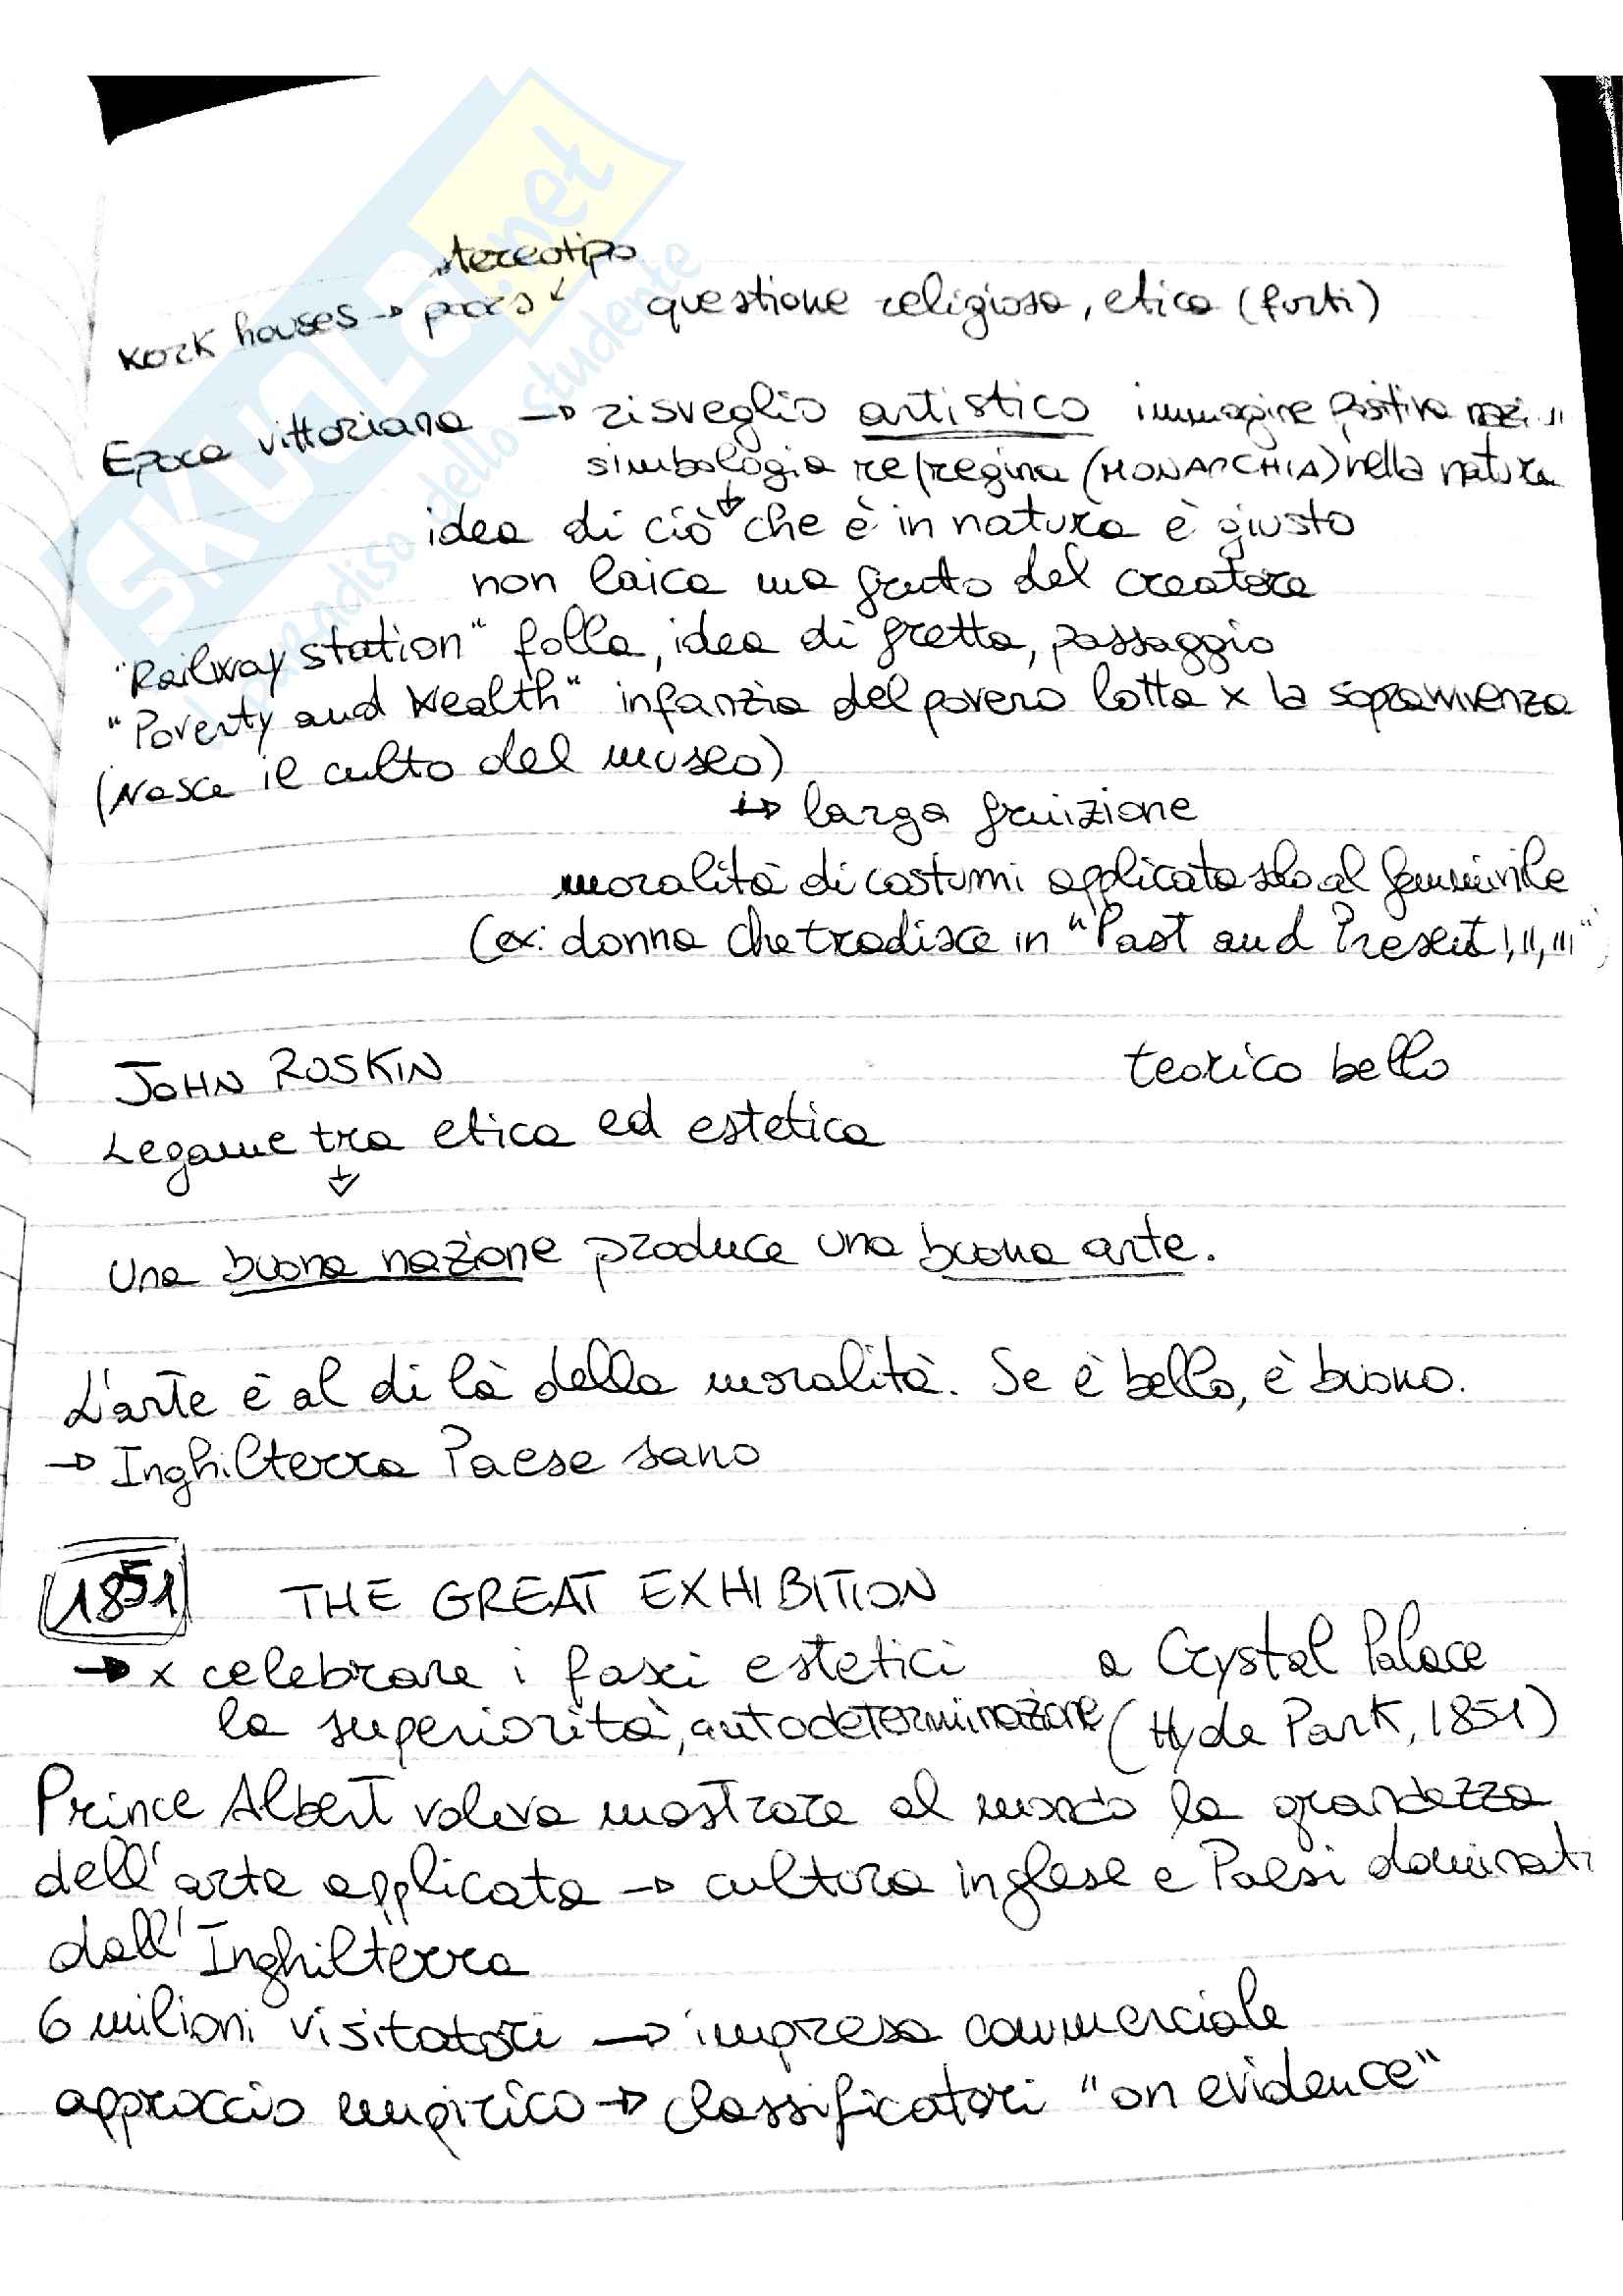 SKUOLA.net
il paradiso dello studente
stereotipo
work houses → poors ↙ questione religiosa, etica (forti)
Epoca vittoriana → risveglio artistico immagine positiva
simbologia re/regina (MONARCHIA) nella natura
idea di ciò che è in natura è giusto
non laica ma frutto del creatore
"Railway station" folla, idea di fretta, passaggio
"Poverty and Wealth" infanzia del povero lotta x la sopravvivenza
(Nasce il culto del museo)
↪ larga fruizione
moralità di costumi applicata solo al femminile
(ex: donna che tradisce in "Past and Present I, II, III"
JOHN RUSKIN teorico bello
Legame tra etica ed estetica
↓
Una buona nazione produce una buona arte.
L'arte è al di là della moralità. Se è bello, è buono.
→ Inghilterra Paese sano
1851 THE GREAT EXHIBITION
→ x celebrare i fasci estetici a Crystal Palace
la superiorità, autodeterminazione (Hyde Park, 1851)
Prince Albert voleva mostrare al mondo la grandezza
dell'arte applicata → cultura inglese e Paesi dominati
dall'Inghilterra
6 milioni visitatori → impresa commerciale
approccio empirico → classificatori "on evidence"